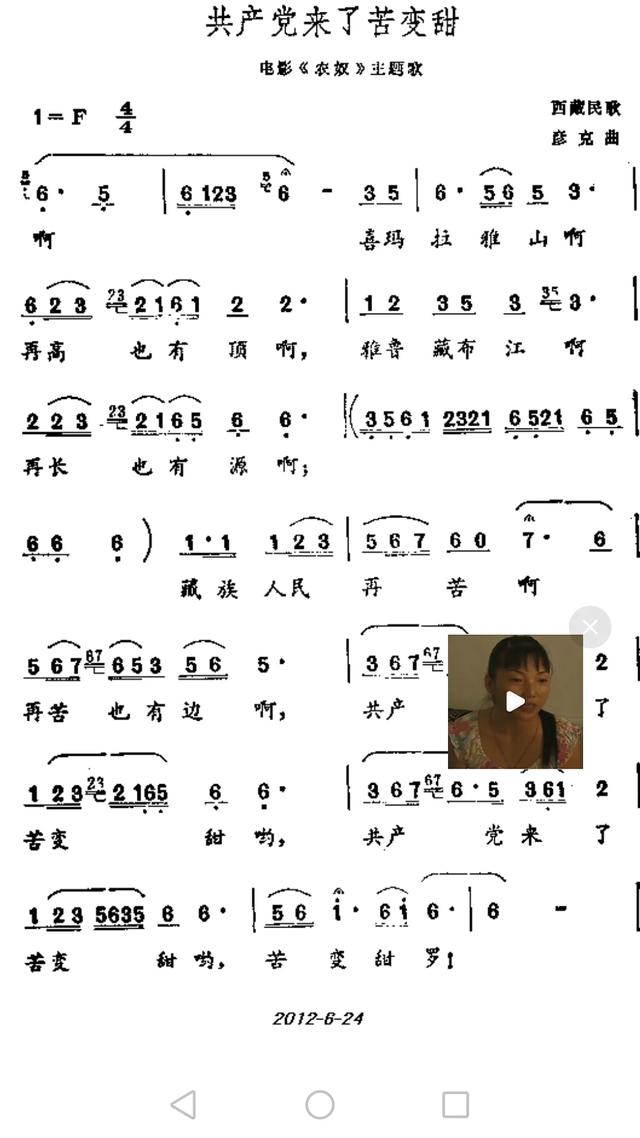 共产党来了苦变甜
电影《农奴》主题歌
1=F 4/4
西藏民歌
彦克 曲
6· 5 | 6 123 6 - 3 5 | 6· 5 6 5 3·
啊 喜玛 拉 雅 山 啊
6 2 3 23 2 1 6 1 2 2· | 1 2 3 5 3 35 3·
再高 也 有 顶 啊, 雅鲁 藏布 江 啊
2 2 3 23 2 1 6 5 6 6· | (3 5 6 1 2321 6 521 6 5
再长 也 有 源 啊;
6 6 6 ) 1·1 1 2 3 | 5 6 7 6 0 7· 6
藏 族 人民 再 苦 啊
5 6 7 67 6 5 3 5 6 5· | 3 6 7 67 2
再苦 也 有 边 啊, 共产 了
1 2 3 23 2 165 6 6· | 3 6 7 67 6·5 3 61 2
苦变 甜 哟, 共产 党 来 了
1 2 3 5635 6 6· | 5 6 i· 6 i 6· | 6 -
苦变 甜 哟, 苦 变 甜 罗!
2012-6-24